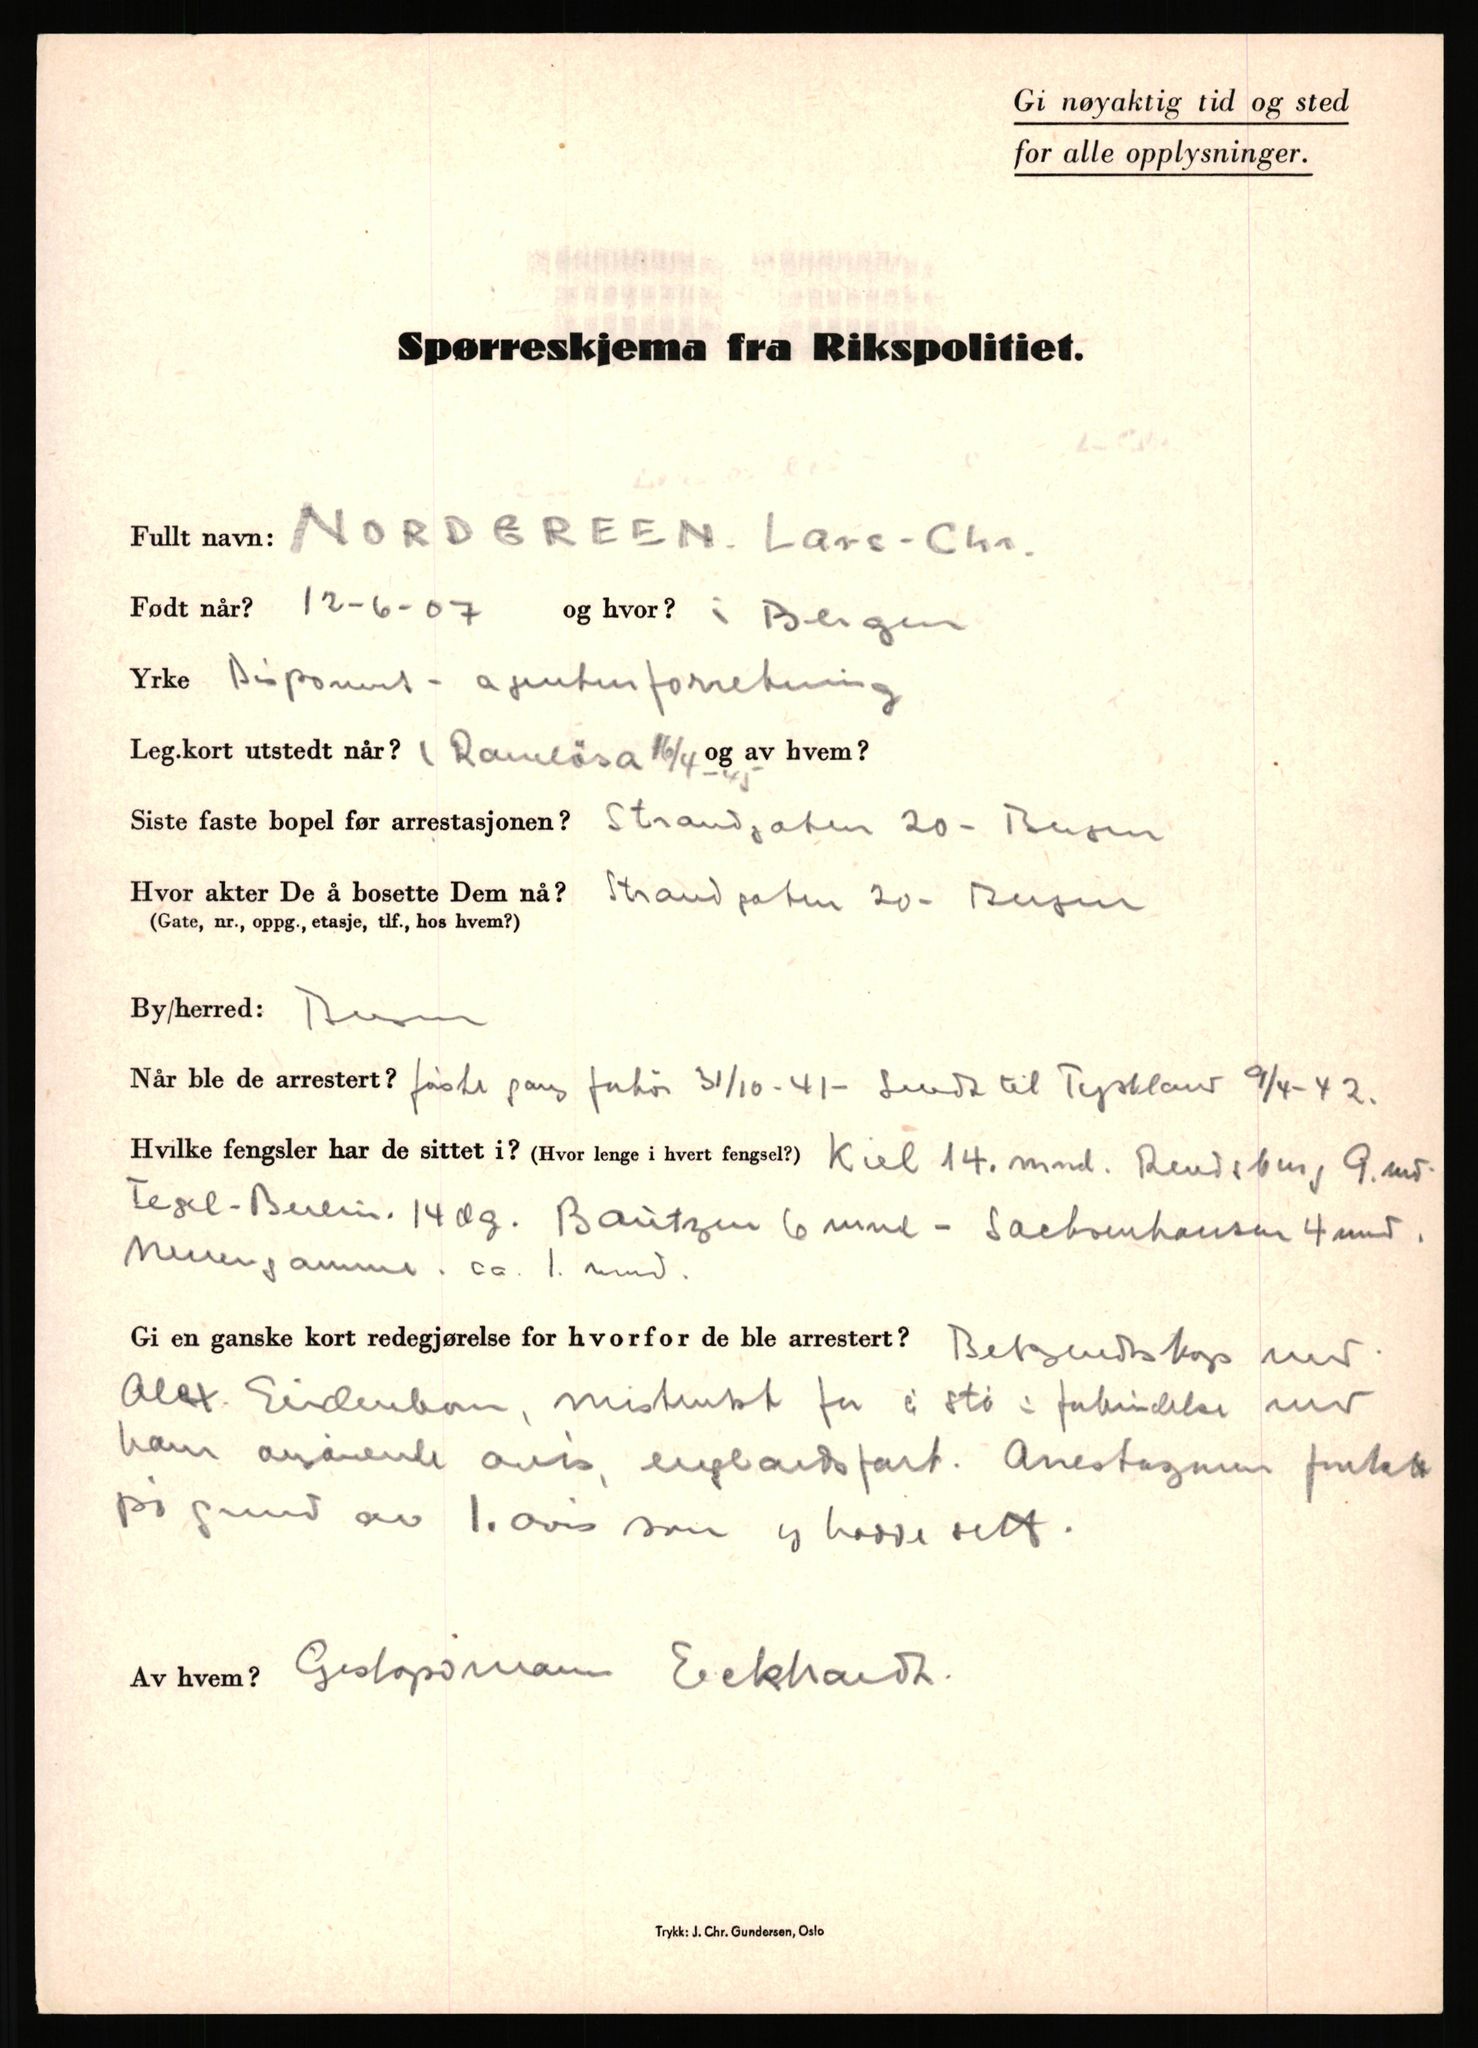 Gi nøyaktig tid og sted
for alle opplysninger.
Spørreskjema fra Rikspolitiet.
Fullt navn: NORDGREEN. Lars-Chr.
Født når? 12-6-07 og hvor? i Bergen
Yrke Disponent - agenturforretning
Leg.kort utstedt når? i Ramlösa 16/4-45 og av hvem?
Siste faste bopel før arrestasjonen? Strandgaten 20 - Bergen
Hvor akter De å bosette Dem nå? Strandgaten 20 - Bergen
(Gate, nr., oppg., etasje, tlf., hos hvem?)
By/herred: Bergen
Når ble de arrestert? første gang forhør 31/10-41 - Sendt til Tyskland 9/4-42.
Hvilke fengsler har de sittet i? (Hvor lenge i hvert fengsel?) Kiel 14. mnd. Rendsburg 9. md.
Tegel-Berlin. 14 dg. Bautzen 6 mnd - Sachsenhausen 4 mnd.
Neuengamme. ca. 1. mnd.
Gi en ganske kort redegjørelse for hvorfor de ble arrestert? Bekjendtskap med
Alex. mistenkt for å stå i forbindelse med
ham angående avis, englandsfart. Arrestasjonen
på grund av 1. avis som jeg hadde sett.
Av hvem? Gestapomann Eckhardt.
Trykk: J. Chr. Gundersen, Oslo